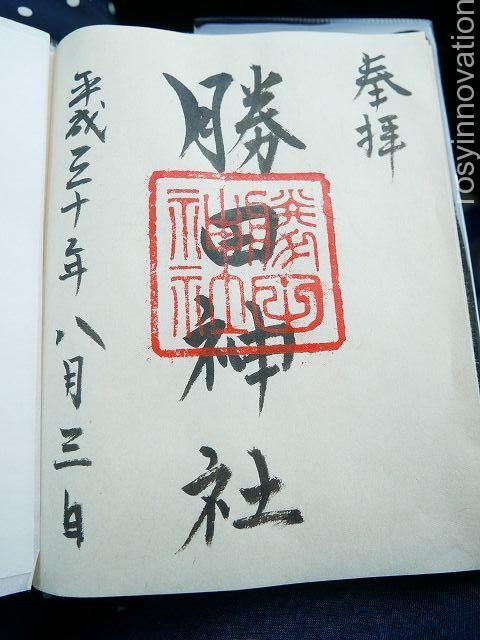 奉拝
勝田神社
勝田
神社
平成三十年八月三日
rosyinnovation